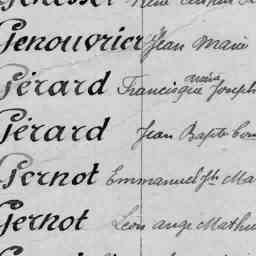 Genouvrier Jean Marie
Gérard Francisque Marie Joseph
Gérard Jean Bapte
Gernot Emmanuel Jh Ma
Gernot Léon ange Mathu